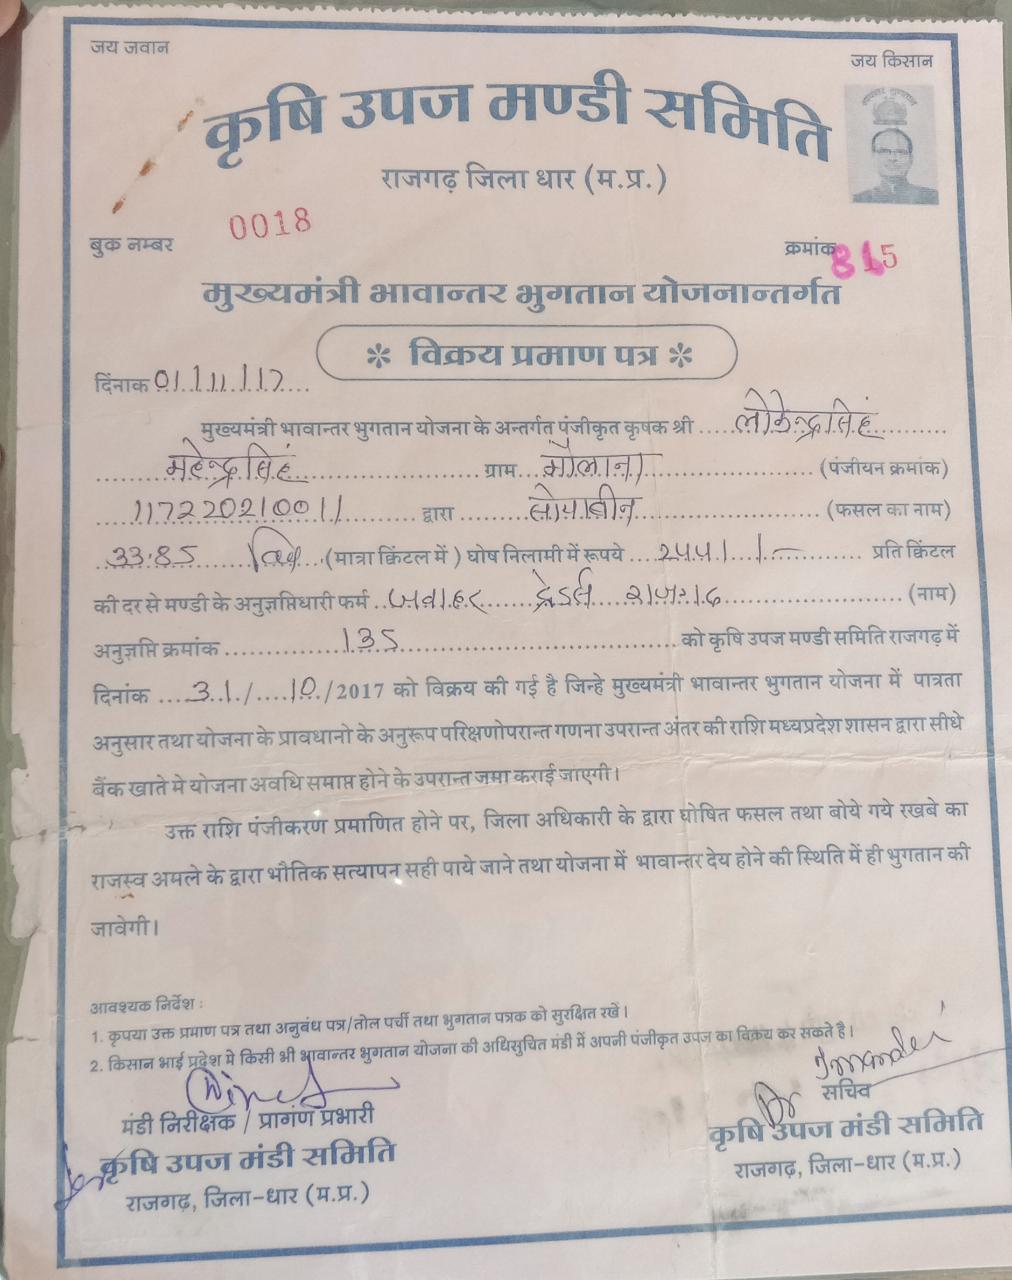 जय जवान
जय किसान
कृषि उपज मण्डी समिति
राजगढ़ जिला धार (म.प्र.)
बुक नम्बर 0018
क्रमांक 815
मुख्यमंत्री भावान्तर भुगतान योजनान्तर्गत
* विक्रय प्रमाण पत्र *
दिंनाक 01/11/17
मुख्यमंत्री भावान्तर भुगतान योजना के अन्तर्गत पंजीकृत कृषक श्री लोकेन्द्रसिंह
महेन्द्रसिंह ग्राम मौलाना (पंजीयन क्रमांक)
117220210011 द्वारा सोयाबीन (फसल का नाम)
33.85 (मात्रा क्विंटल में) घोष निलामी में रूपये प्रति क्विंटल
की दर से मण्डी के अनुज्ञप्तिधारी फर्म जवाहर ट्रेडर्स राजगढ (नाम)
अनुज्ञप्ति क्रमांक 135 को कृषि उपज मण्डी समिति राजगढ़ में
दिनांक 31/10/2017 को विक्रय की गई है जिन्हे मुख्यमंत्री भावान्तर भुगतान योजना में पात्रता
अनुसार तथा योजना के प्रावधानो के अनुरूप परिक्षणोपरान्त गणना उपरान्त अंतर की राशि मध्यप्रदेश शासन द्वारा सीधे
बैंक खाते मे योजना अवधि समाप्त होने के उपरान्त जमा कराई जाएगी।
उक्त राशि पंजीकरण प्रमाणित होने पर, जिला अधिकारी के द्वारा घोषित फसल तथा बोये गये रखबे का
राजस्व अमले के द्वारा भौतिक सत्यापन सही पाये जाने तथा योजना में भावान्तर देय होने की स्थिति में ही भुगतान की
जावेगी।
आवश्यक निर्देश :
1. कृपया उक्त प्रमाण पत्र तथा अनुबंध पत्र/तोल पर्ची तथा भुगतान पत्रक को सुरक्षित रखें।
2. किसान भाई प्रदेश मे किसी भी भावान्तर भुगतान योजना की अधिसुचित मंडी में अपनी पंजीकृत उपज का विक्रय कर सकते है।
मंडी निरीक्षक / प्रागंण प्रभारी
कृषि उपज मंडी समिति
राजगढ़, जिला-धार (म.प्र.)
सचिव
कृषि उपज मंडी समिति
राजगढ़, जिला-धार (म.प्र.)